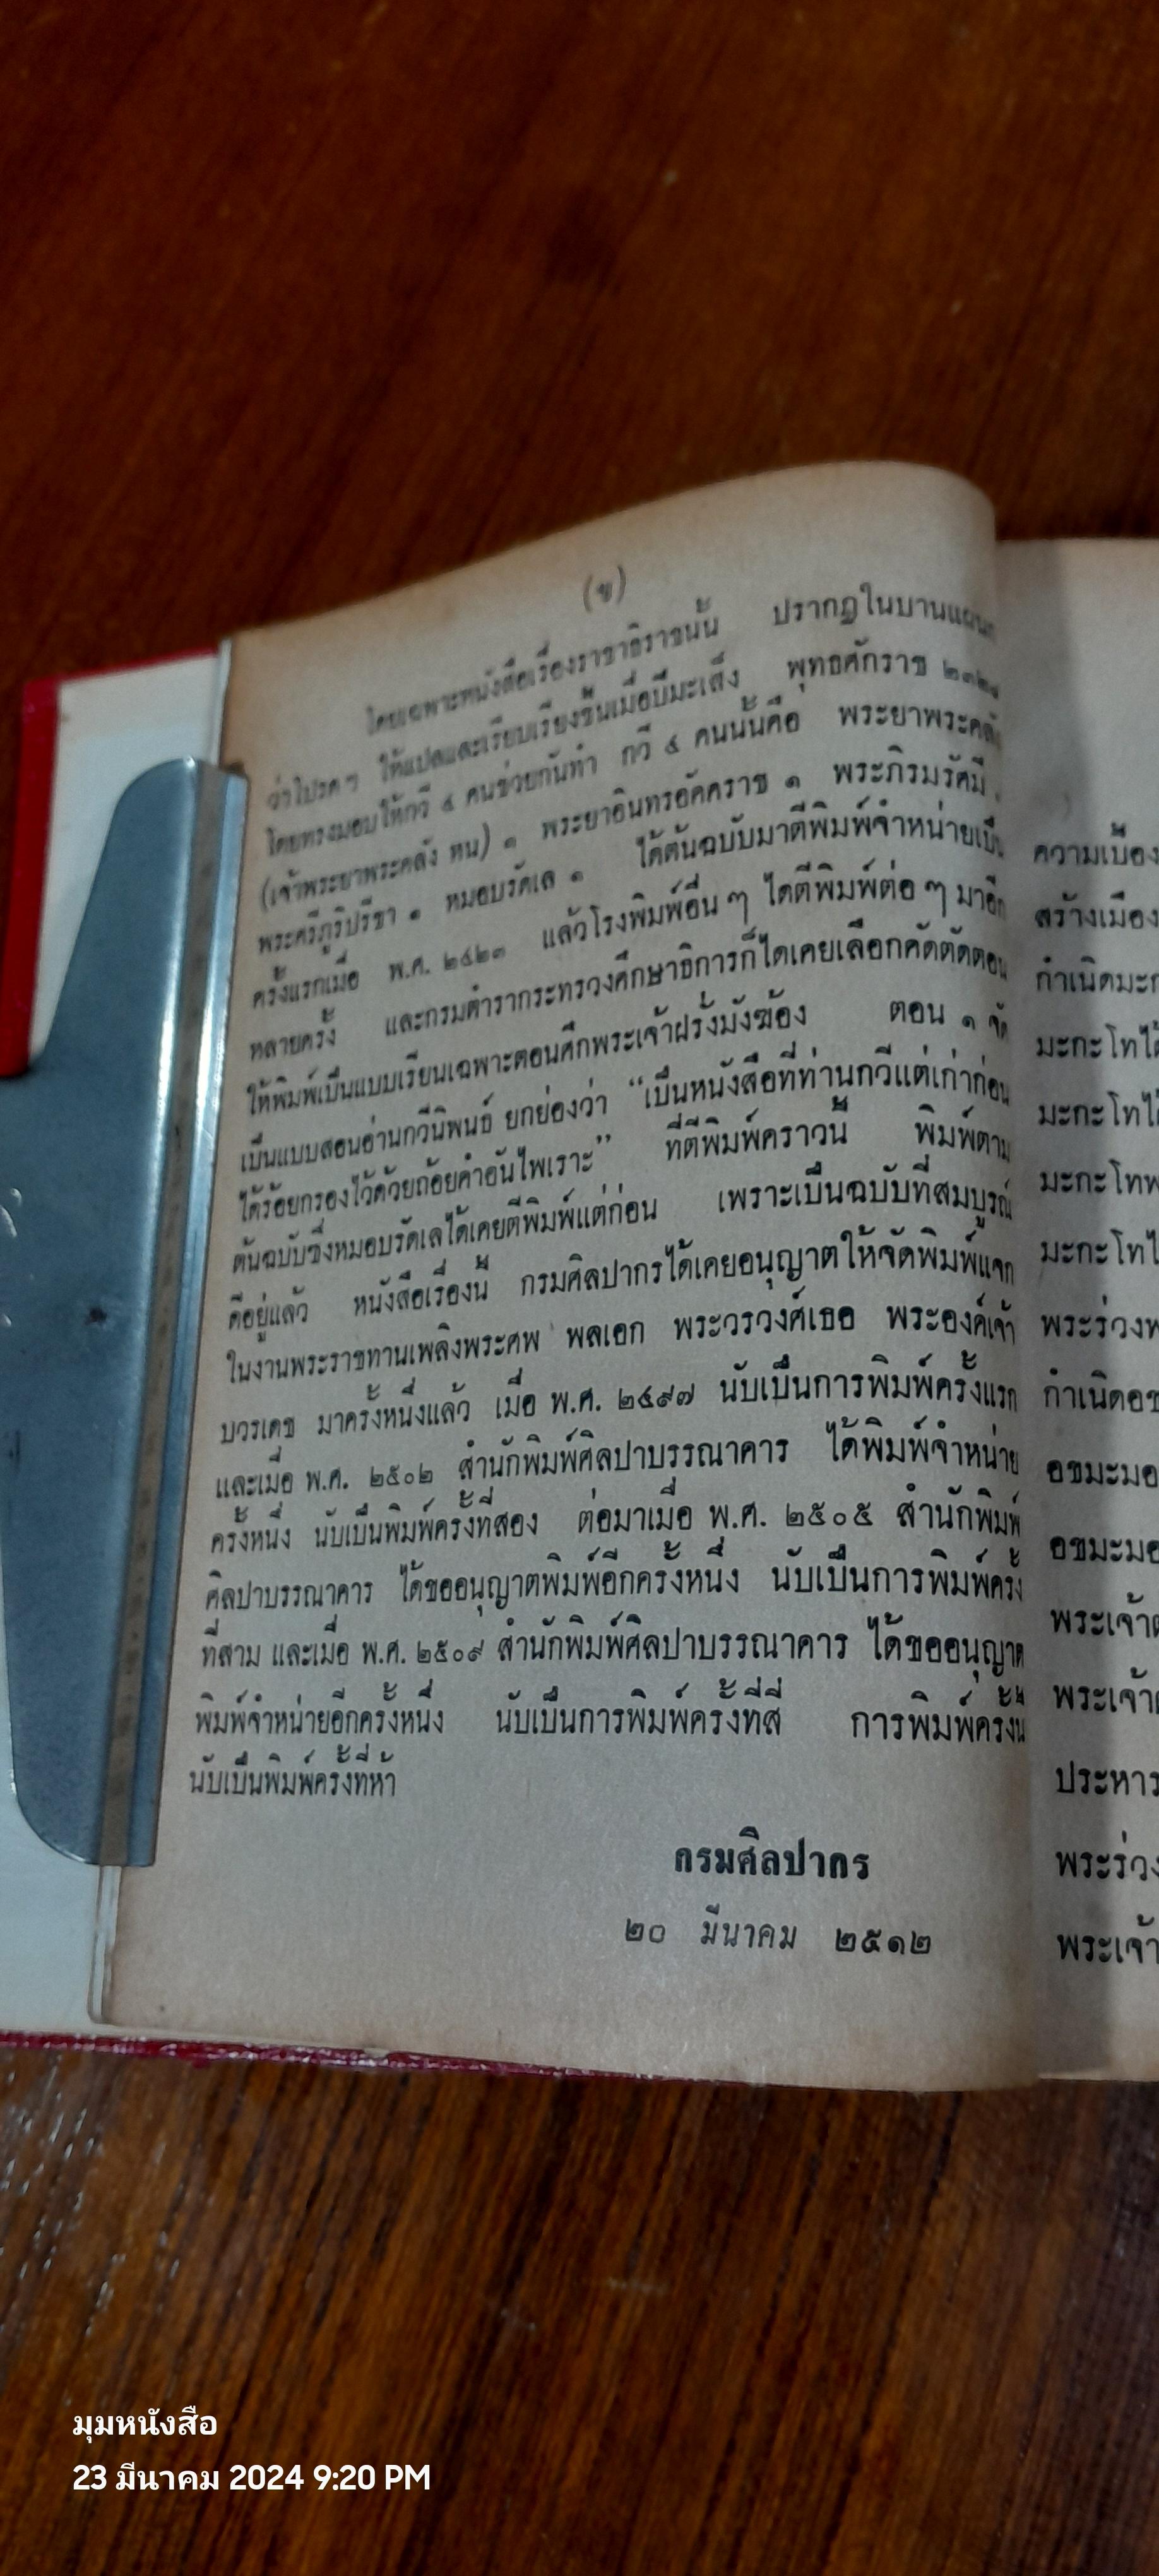 (ข)
โดยเฉพาะหนังสือเรื่องราชาธิราชนั้น ปรากฏในบานแผนก
ว่าโปรด ๆ ให้แปลและเรียบเรียงขึ้นเมื่อปีมะเส็ง พุทธศักราช ๒๓๒๘
โดยทรงมอบให้กวี ๔ คนช่วยกันทำ กวี ๔ คนนั้นคือ พระยาพระคลัง
(เจ้าพระยาพระคลัง หน) ๑ พระยาอินทรอัคคราช ๑ พระภิรมรัศมี
พระศรีภูริปรีชา ๑ หมอบรัดเล ๑ ได้ต้นฉบับมาตีพิมพ์จำหน่ายเป็น
ครั้งแรกเมื่อ พ.ศ. ๒๔๒๓ แล้วโรงพิมพ์อื่น ๆ ได้ตีพิมพ์ต่อ ๆ มาอีก
หลายครั้ง และกรมตำรากระทรวงศึกษาธิการก็ได้เคยเลือกคัดตัดตอน
ให้พิมพ์เป็นแบบเรียนเฉพาะตอนศึกพระเจ้าฝรั่งมังฆ้อง ตอน ๑ จัด
เป็นแบบสอนอ่านกวีนิพนธ์ ยกย่องว่า “เป็นหนังสือที่ท่านกวีแต่เก่าก่อน
ได้ร้อยกรองไว้ด้วยถ้อยคำอันไพเราะ” ที่ตีพิมพ์คราวนี้ พิมพ์ตาม
ต้นฉบับซึ่งหมอบรัดเลได้เคยตีพิมพ์แต่ก่อน เพราะเป็นฉบับที่สมบูรณ์
ดีอยู่แล้ว หนังสือเรื่องนี้ กรมศิลปากรได้เคยอนุญาตให้จัดพิมพ์แจก
ในงานพระราชทานเพลิงพระศพ พลเอก พระวรวงศ์เธอ พระองค์เจ้า
บวรเดช มาครั้งหนึ่งแล้ว เมื่อ พ.ศ. ๒๔๙๗ นับเป็นการพิมพ์ครั้งแรก
และเมื่อ พ.ศ. ๒๕๐๒ สำนักพิมพ์ศิลปาบรรณาคาร ได้พิมพ์จำหน่าย
ครั้งหนึ่ง นับเป็นพิมพ์ครั้งที่สอง ต่อมาเมื่อ พ.ศ. ๒๕๐๕ สำนักพิมพ์
ศิลปาบรรณาคาร ได้ขออนุญาตพิมพ์อีกครั้งหนึ่ง นับเป็นการพิมพ์ครั้ง
ที่สาม และเมื่อ พ.ศ. ๒๕๐๙ สำนักพิมพ์ศิลปาบรรณาคาร ได้ขออนุญาต
พิมพ์จำหน่ายอีกครั้งหนึ่ง นับเป็นการพิมพ์ครั้งที่สี่ การพิมพ์ครั้งนี้
นับเป็นพิมพ์ครั้งที่ห้า
กรมศิลปากร
๒๐ มีนาคม ๒๕๑๒
ความเบื้อง
สร้างเมือง
กำเนิดมะก
มะกะโทได้
มะกะโทได้
มะกะโทพ
มะกะโทได้
พระร่วงพ
กำเนิดอช
อชมะมอ
อชมะมอ
พระเจ้า
พระเจ้า
ประหาร
พระร่วง
พระเจ้า
มุมหนังสือ
23 มีนาคม 2024 9:20 PM